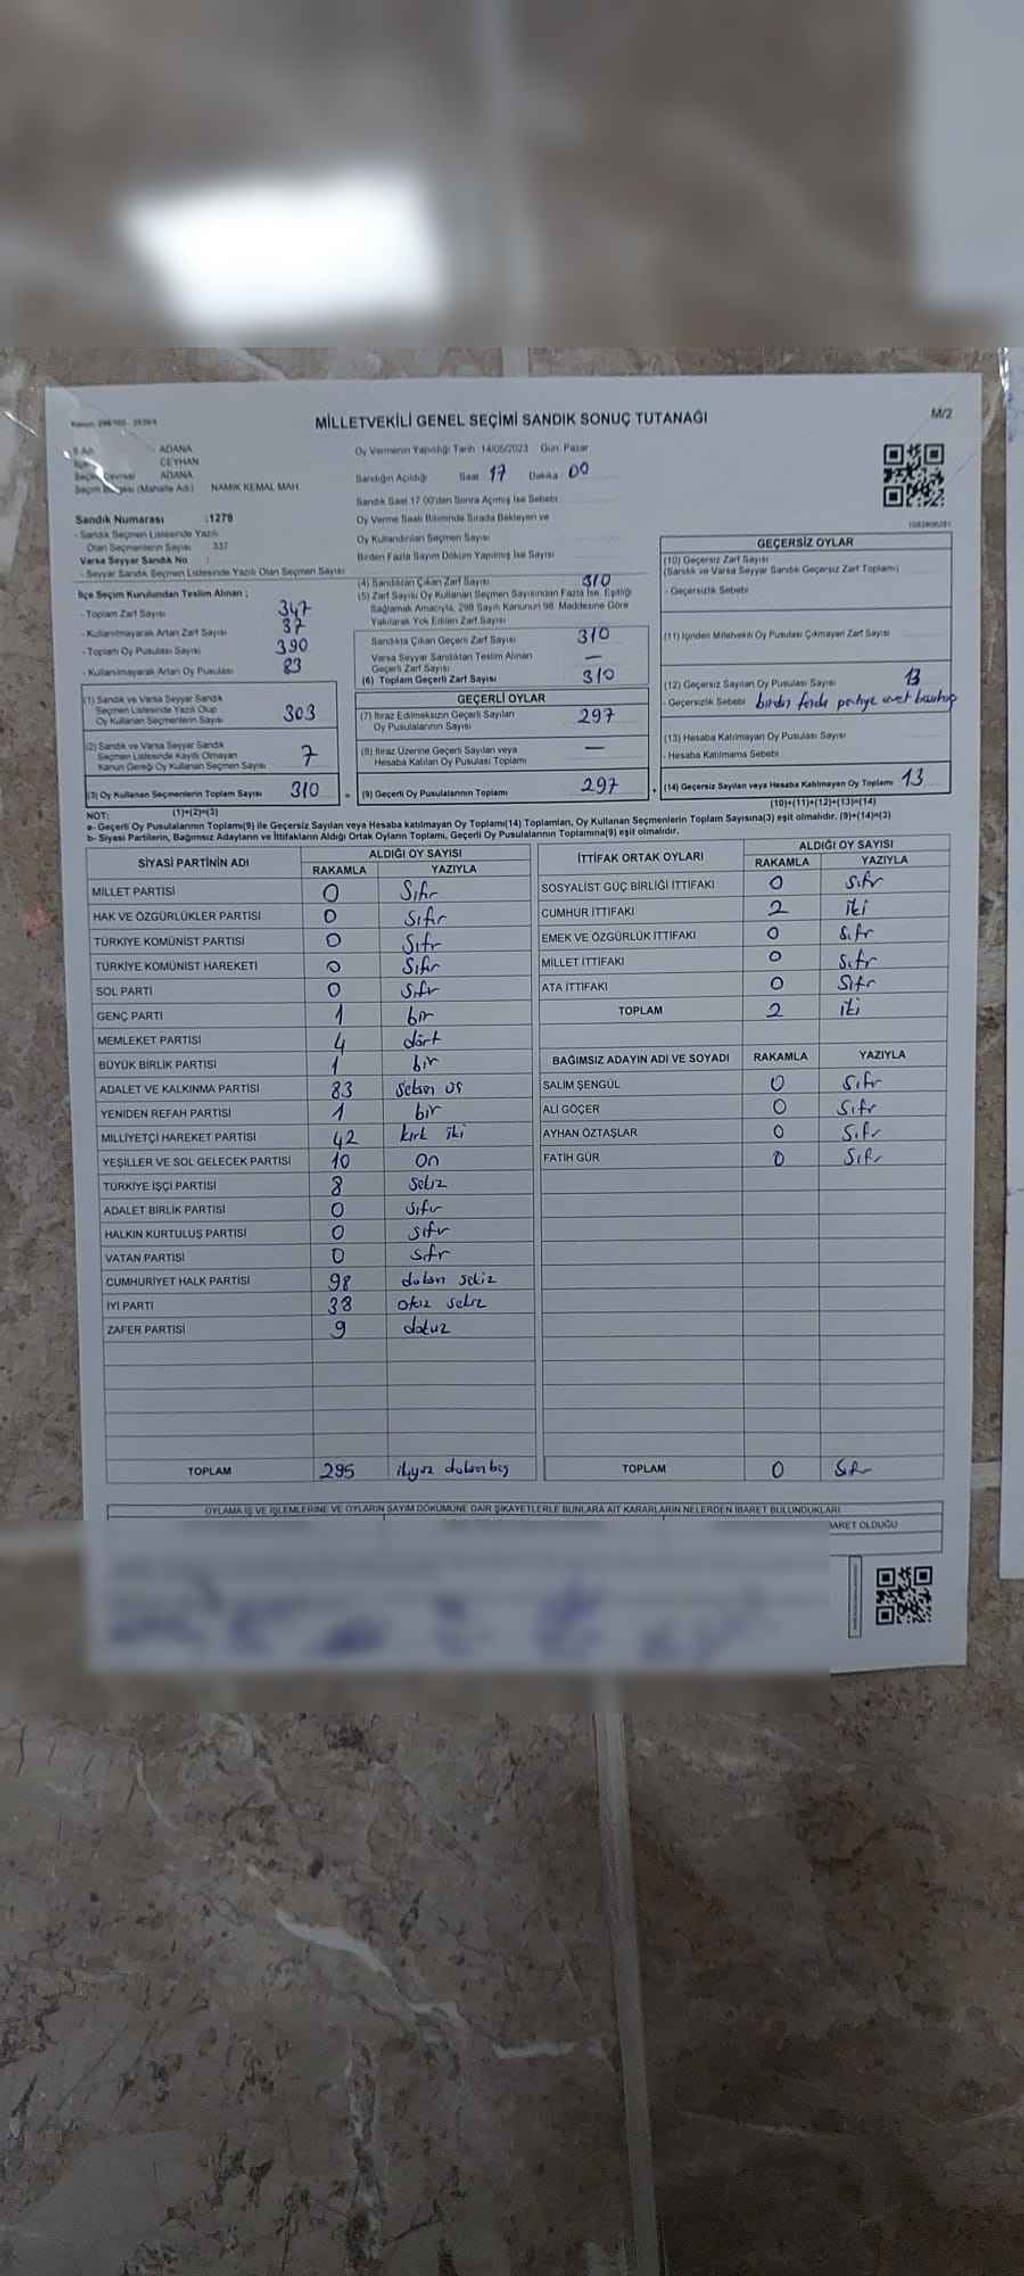 MİLLETVEKİLİ GENEL SEÇİMİ SANDIK SONUÇ TUTANAĞI
M/2
ADANA
CEYHAN
ADANA
Seçim Bölgesi (Mahalle Adı) NAMIK KEMAL MAH.
Sandık Numarası :1278
- Sandık Seçmen Listesinde Yazılı
Olan Seçmenlerin Sayısı : 337
Varsa Seyyar Sandık No :
- Seyyar Sandık Seçmen Listesinde Yazılı Olan Seçmen Sayısı
Oy Vermenin Yapıldığı Tarih 14/05/2023 Gün: Pazar
Sandığın Açıldığı Saat 17 Dakika 00
Sandık Saat 17.00'den Sonra Açılmış İse Sebebi
Oy Verme Saati Bitiminde Sırada Bekleyen ve
Oy Kullandırılan Seçmen Sayısı
Birden Fazla Sayım Döküm Yapılmış İse Sayısı
İlçe Seçim Kurulundan Teslim Alınan ;
- Toplam Zarf Sayısı 347
- Kullanılmayarak Artan Zarf Sayısı 37
- Toplam Oy Pusulası Sayısı 390
- Kullanılmayarak Artan Oy Pusulası 83
(1) Sandık ve Varsa Seyyar Sandık
Seçmen Listesinde Yazılı Olup
Oy Kullanan Seçmenlerin Sayısı 303
(2) Sandık ve Varsa Seyyar Sandık
Seçmen Listesinde Kayıtlı Olmayan
Kanun Gereği Oy Kullanan Seçmen Sayısı 7
(3) Oy Kullanan Seçmenlerin Toplam Sayısı 310
(1)+(2)=(3)
(4) Sandıktan Çıkan Zarf Sayısı 310
(5) Zarf Sayısı Oy Kullanan Seçmen Sayısından Fazla İse, Eşitliği
Sağlamak Amacıyla, 298 Sayılı Kanunun 98. Maddesine Göre
Yakılarak Yok Edilen Zarf Sayısı
Sandıkta Çıkan Geçerli Zarf Sayısı 310
Varsa Seyyar Sandıktan Teslim Alınan
Geçerli Zarf Sayısı —
(6) Toplam Geçerli Zarf Sayısı 310
GEÇERLİ OYLAR
(7) İtiraz Edilmeksizin Geçerli Sayılan
Oy Pusulalarının Sayısı 297
(8) İtiraz Üzerine Geçerli Sayılan veya
Hesaba Katılan Oy Pusulası Toplamı —
= (9) Geçerli Oy Pusulalarının Toplamı 297
GEÇERSİZ OYLAR
(10) Geçersiz Zarf Sayısı
(Sandık ve Varsa Seyyar Sandık Geçersiz Zarf Toplamı)
- Geçersizlik Sebebi
(11) İçinden Milletvekili Oy Pusulası Çıkmayan Zarf Sayısı
(12) Geçersiz Sayılan Oy Pusulası Sayısı 13
- Geçersizlik Sebebi birden fazla partiye evet
(13) Hesaba Katılmayan Oy Pusulası Sayısı
- Hesaba Katılmama Sebebi
+ (14) Geçersiz Sayılan veya Hesaba Katılmayan Oy Toplamı 13
(10)+(11)+(12)+(13)=(14)
NOT:
a- Geçerli Oy Pusulalarının Toplamı(9) ile Geçersiz Sayılan veya Hesaba Katılmayan Oy Toplamı(14) Toplamları, Oy Kullanan Seçmenlerin Toplam Sayısına(3) eşit olmalıdır. (9)+(14)=(3)
b- Siyasi Partilerin, Bağımsız Adayların ve İttifakların Aldığı Ortak Oyların Toplamı, Geçerli Oy Pusulalarının Toplamına(9) eşit olmalıdır.
SİYASİ PARTİNİN ADI ALDIĞI OY SAYISI
RAKAMLA YAZIYLA
MİLLET PARTİSİ 0 Sıfır
HAK VE ÖZGÜRLÜKLER PARTİSİ 0 Sıfır
TÜRKİYE KOMÜNİST PARTİSİ 0 Sıfır
TÜRKİYE KOMÜNİST HAREKETİ 0 Sıfır
SOL PARTİ 0 Sıfır
GENÇ PARTİ 1 bir
MEMLEKET PARTİSİ 4 dört
BÜYÜK BİRLİK PARTİSİ 1 bir
ADALET VE KALKINMA PARTİSİ 83 Seksen üç
YENİDEN REFAH PARTİSİ 1 bir
MİLLİYETÇİ HAREKET PARTİSİ 42 kırk iki
YEŞİLLER VE SOL GELECEK PARTİSİ 10 on
TÜRKİYE İŞÇİ PARTİSİ 8 Sekiz
ADALET BİRLİK PARTİSİ 0 Sıfır
HALKIN KURTULUŞ PARTİSİ 0 Sıfır
VATAN PARTİSİ 0 Sıfır
CUMHURİYET HALK PARTİSİ 98 doksan sekiz
İYİ PARTİ 38 otuz sekiz
ZAFER PARTİSİ 9 dokuz
TOPLAM 295 ikiyüz doksanbeş
İTTİFAK ORTAK OYLARI ALDIĞI OY SAYISI
RAKAMLA YAZIYLA
SOSYALİST GÜÇ BİRLİĞİ İTTİFAKI 0 Sıfır
CUMHUR İTTİFAKI 2 iki
EMEK VE ÖZGÜRLÜK İTTİFAKI 0 Sıfır
MİLLET İTTİFAKI 0 Sıfır
ATA İTTİFAKI 0 Sıfır
TOPLAM 2 iki
BAĞIMSIZ ADAYIN ADI VE SOYADI RAKAMLA YAZIYLA
SALİM ŞENGÜL 0 Sıfır
ALİ GÖÇER 0 Sıfır
AYHAN ÖZTAŞLAR 0 Sıfır
FATİH GÜR 0 Sıfır
TOPLAM 0 Sıfır
OYLAMA İŞ VE İŞLEMLERİNE VE OYLARIN SAYIM DÖKÜMÜNE DAİR ŞİKAYETLERLE BUNLARA AİT KARARLARIN NELERDEN İBARET BULUNDUKLARI
OLDUĞU